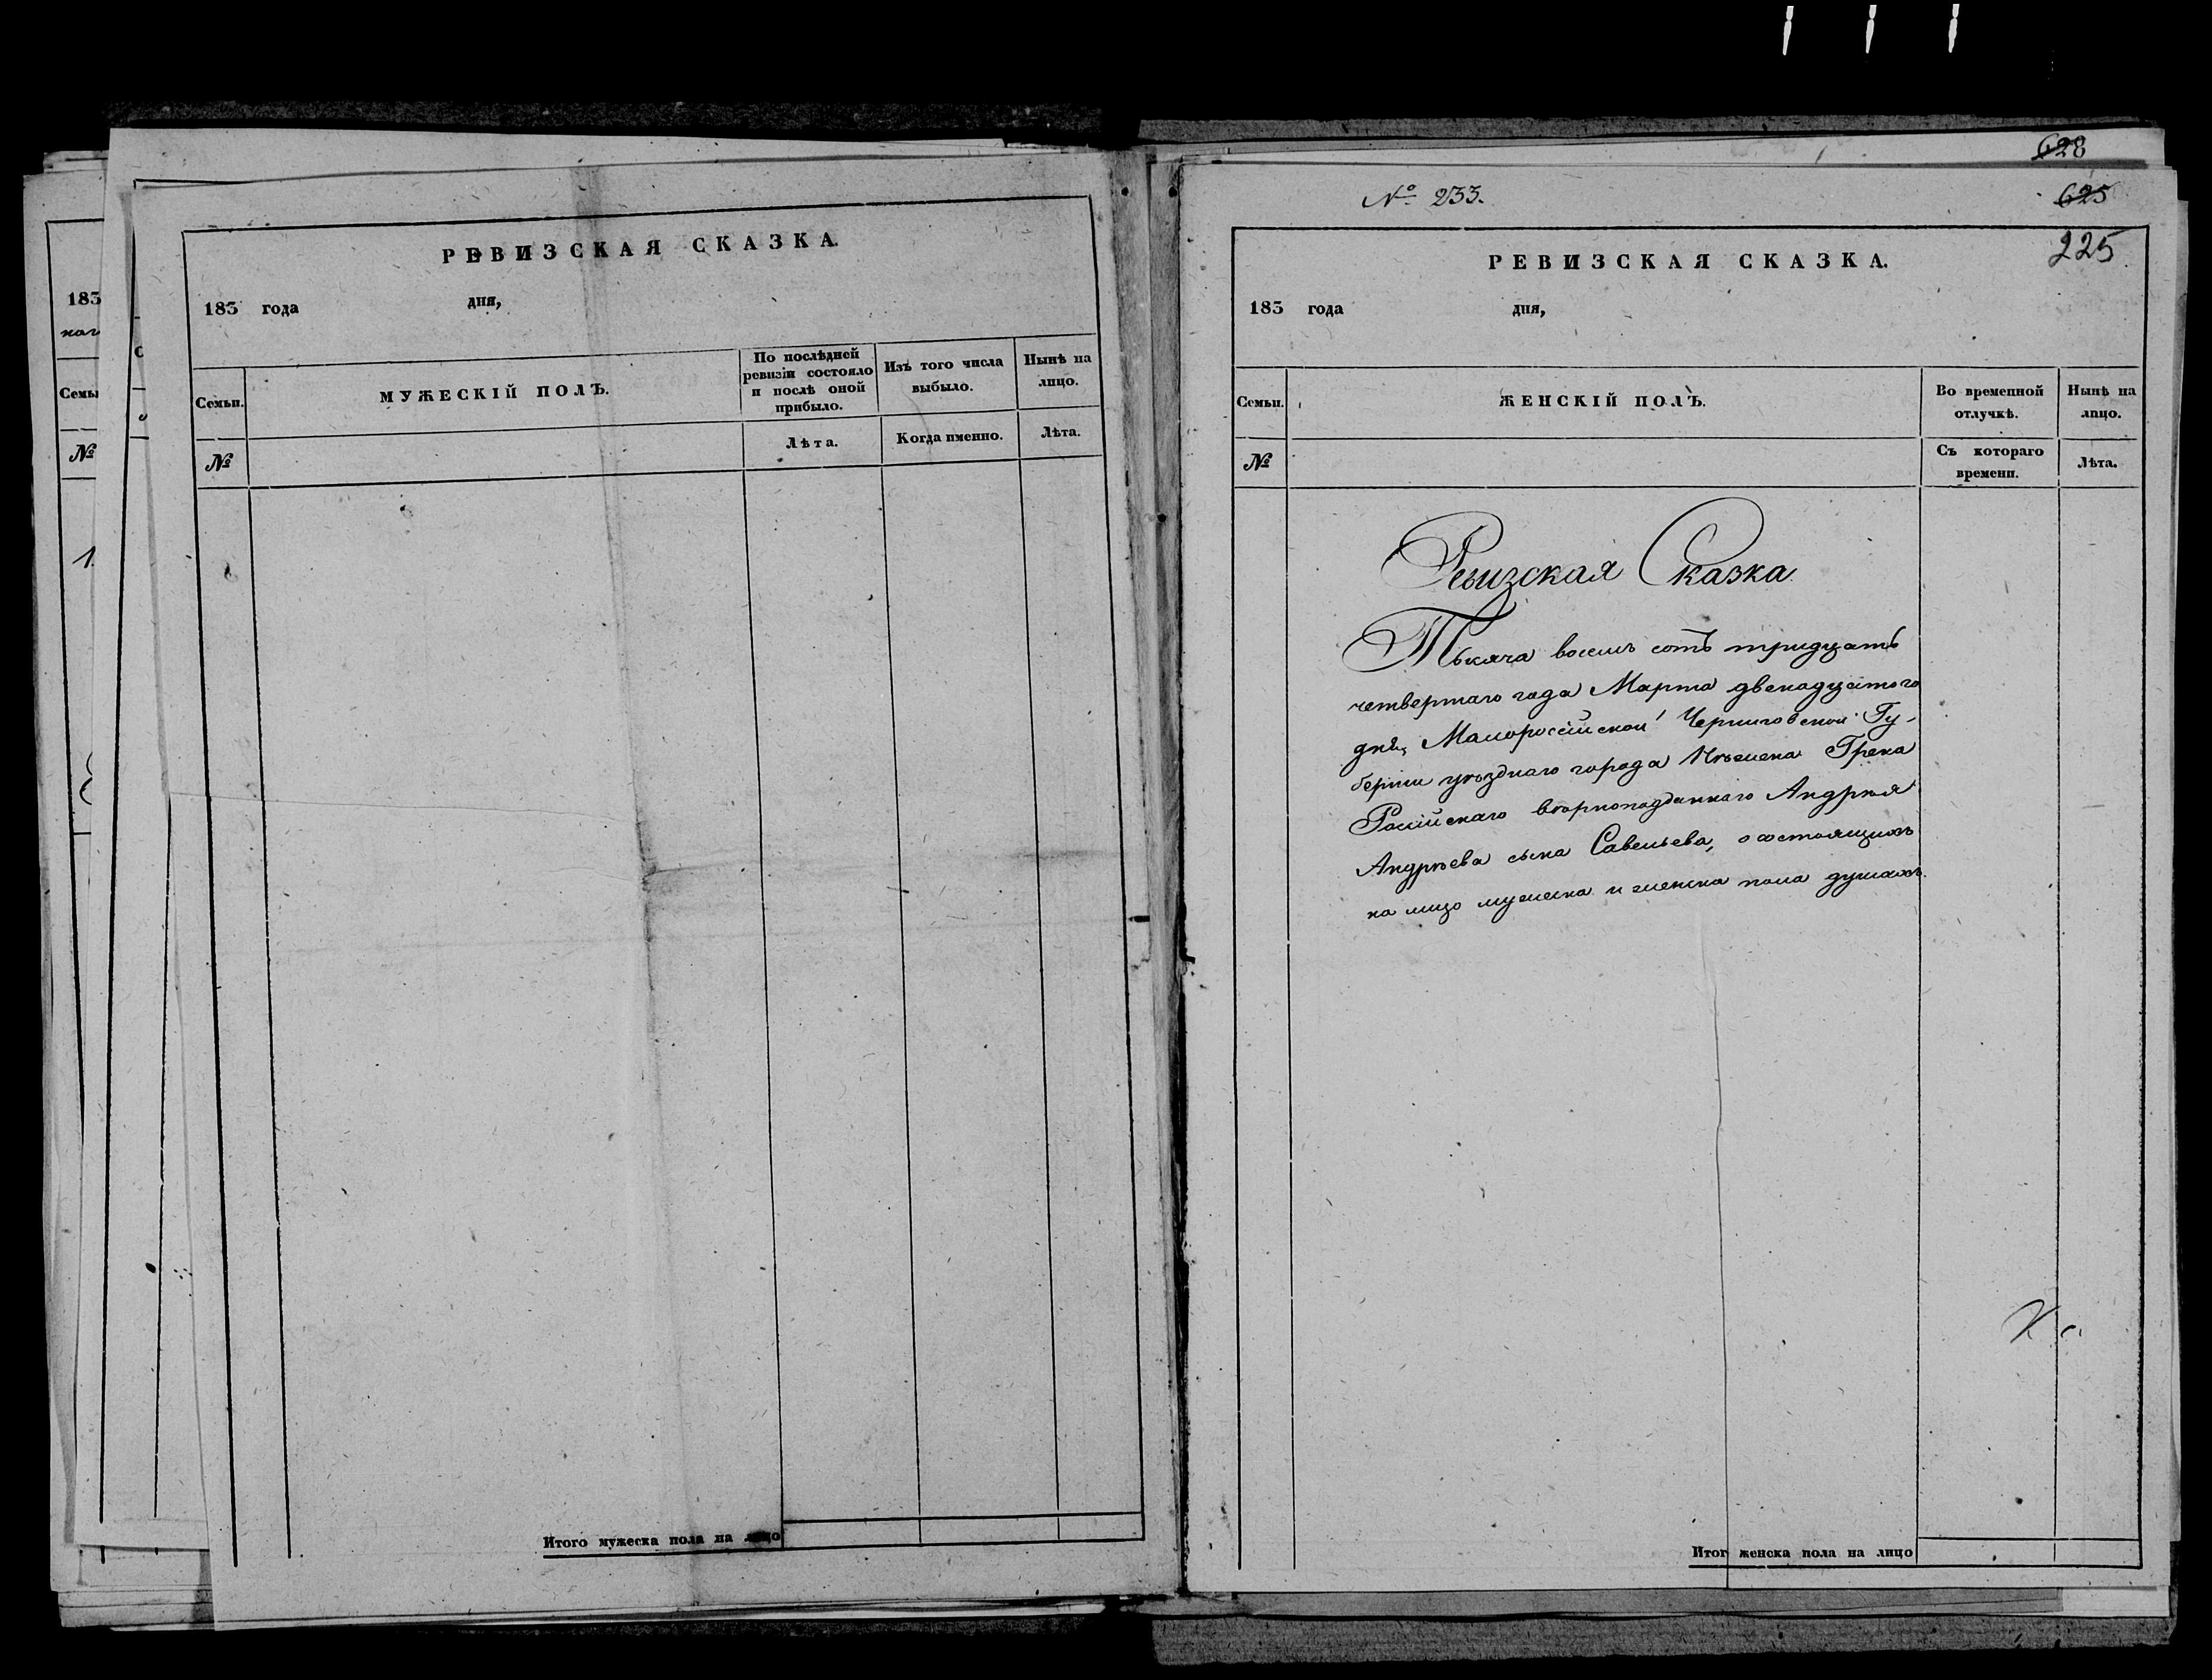 183
наг
Семьи
№
1.
РЕВИЗСКАЯ СКАЗКА.
183 года дня,
Семьи.
МУЖЕСКІЙ ПОЛЪ.
По послѣдней ревизіи состояло и послѣ оной прибыло.
Изъ того числа выбыло.
Нынѣ на лицо.
№
Лѣта.
Когда именно.
Лѣта.
Итого мужеска пола на лицо
628
№ 233.
625
225
РЕВИЗСКАЯ СКАЗКА.
183 года дня,
Семьи.
ЖЕНСКІЙ ПОЛЪ.
Во временной отлучкѣ.
Нынѣ на лицо.
№
Съ котораго времени.
Лѣта.
Ревизская Сказка
Тысяча восемь сотъ тридцать
четвертаго года Марта двенадцатого
дня, Малороссійской Черниговской Гу-
берніи уѣзднаго города Нѣжена Грека
Россійскаго вѣрноподданнаго Андрѣя
Андрѣева сына Савельева, о состоящихъ
на лицо мужеска и женска пола душахъ.
Итог женска пола на лицо